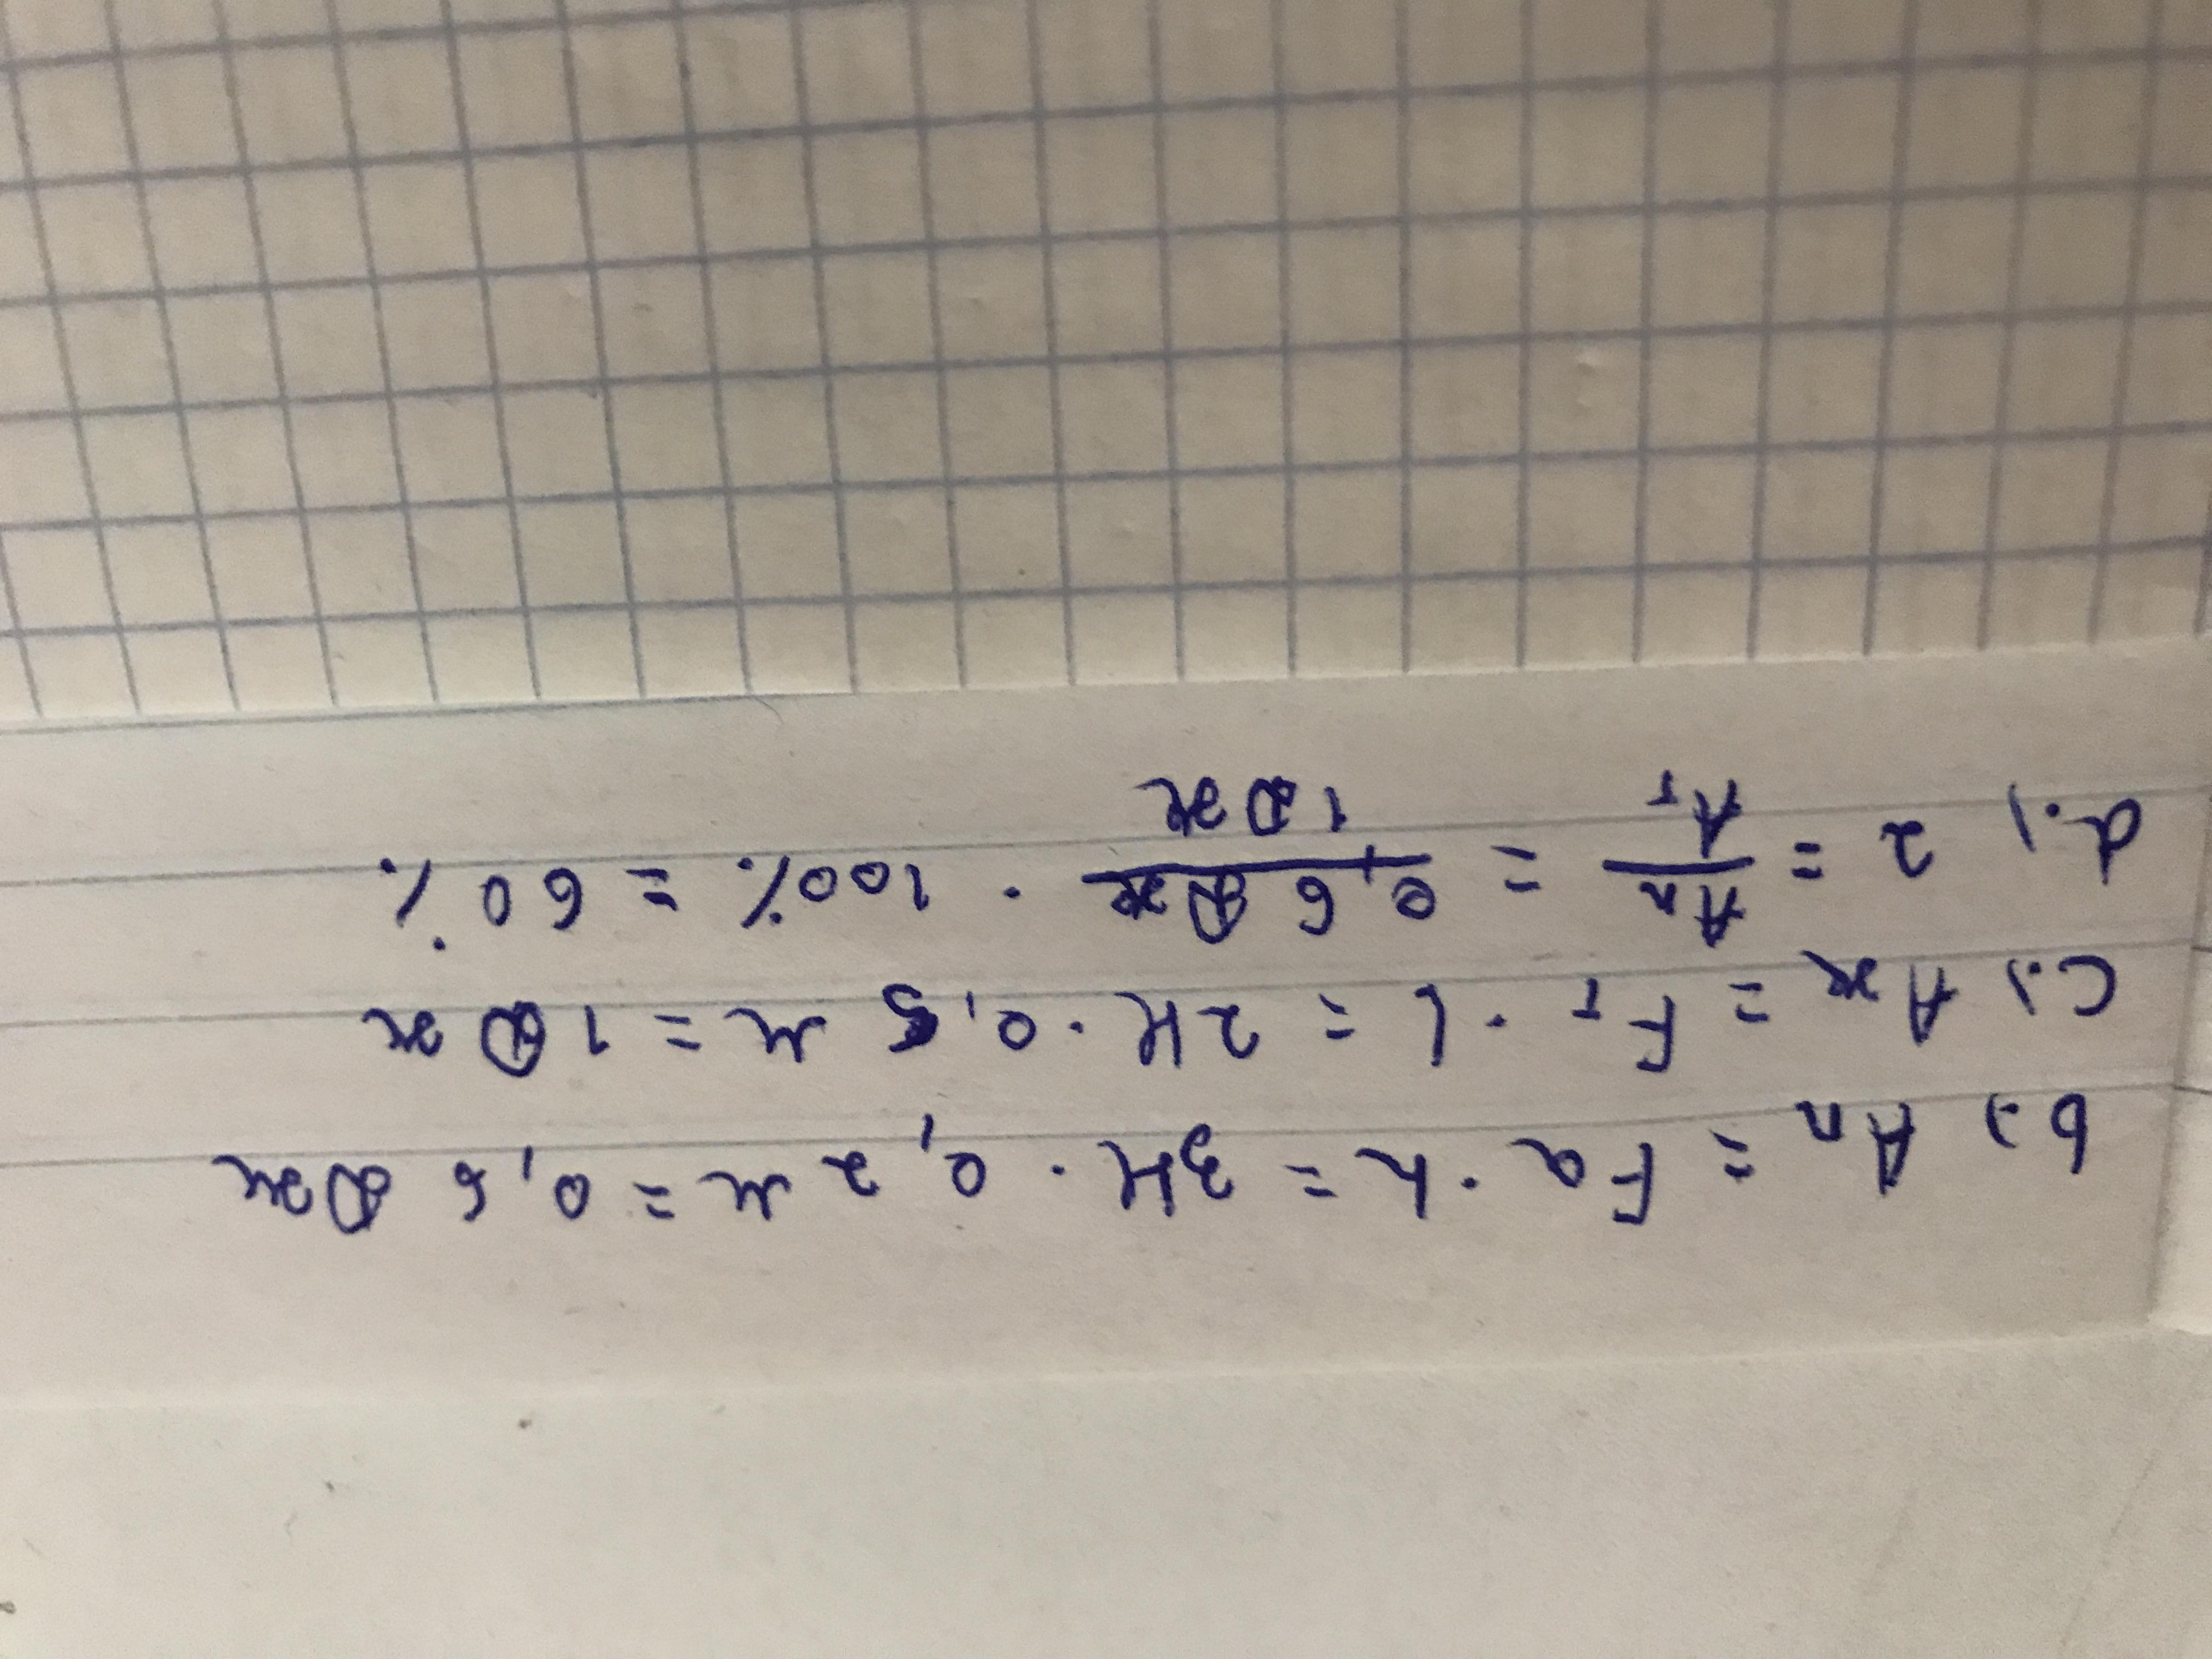 b.) Aп = Fa · h = 3Н · 0,2 м = 0,6 Дж
c.) Aж = Fт · l = 2Н · 0,5 м = 1 Дж
d.) 2 = Aп/Aт = 0,6 Дж/1 Дж · 100% = 60 %